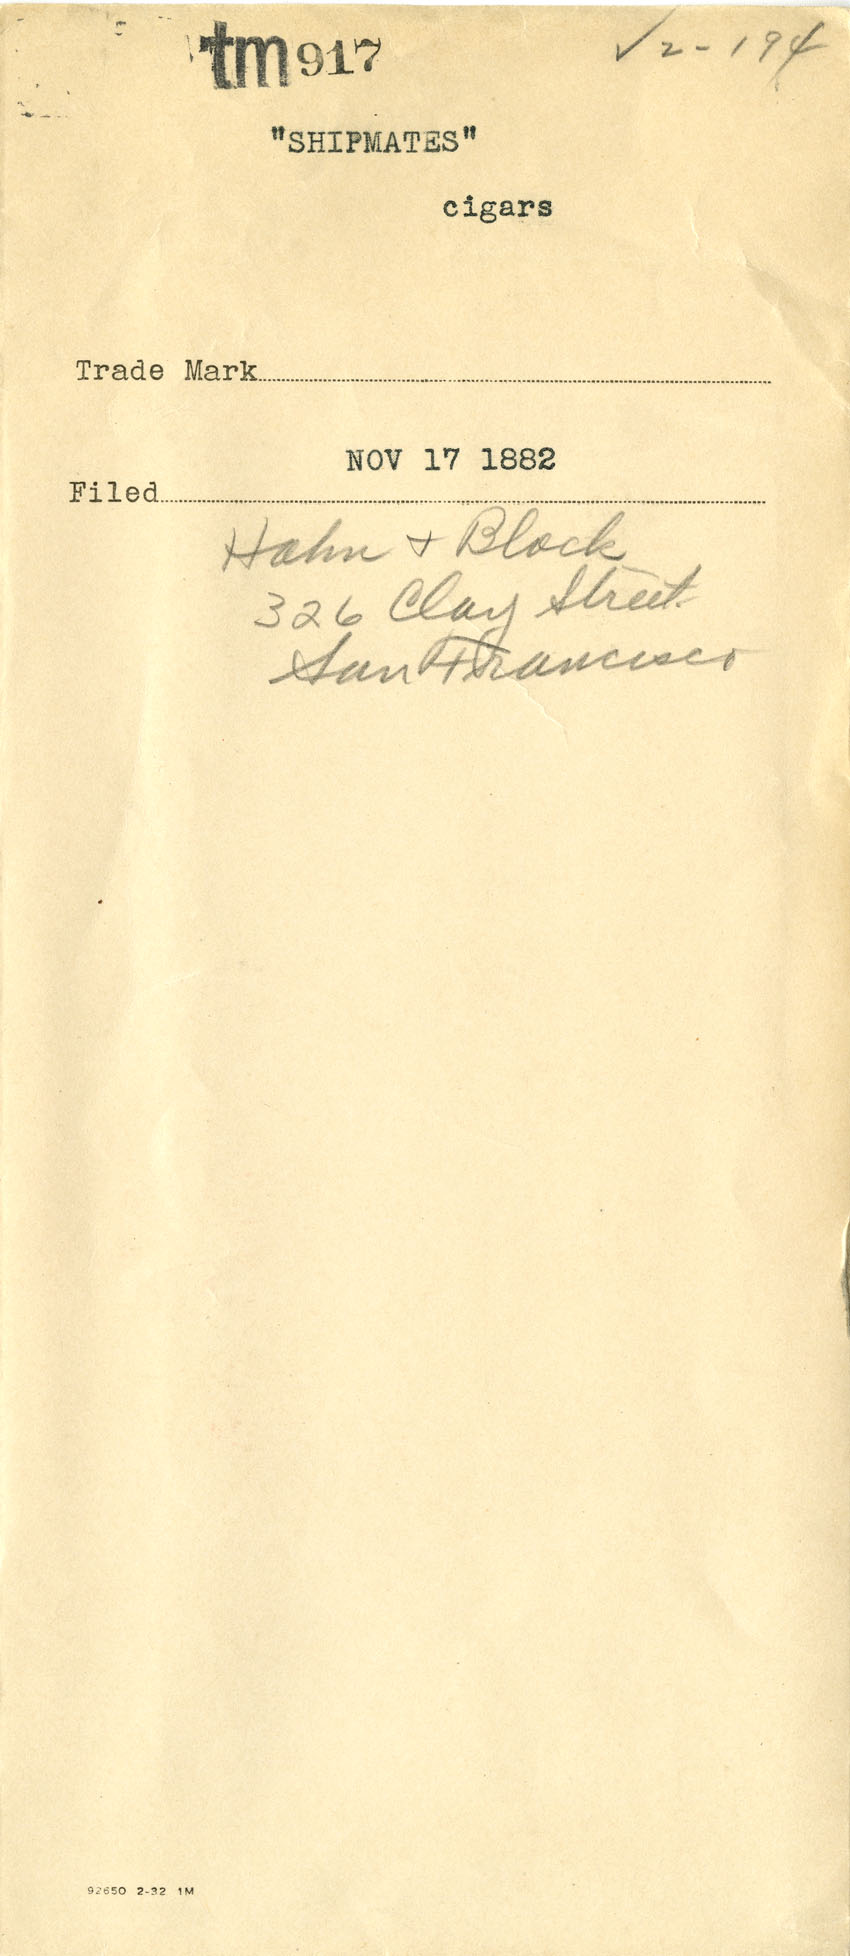 tm 917 √ 2-194
"SHIPMATES"
cigars
Trade Mark
NOV 17 1882
Filed
Hahn + Block
326 Clay Street
San Francisco
92650 2-32 1M